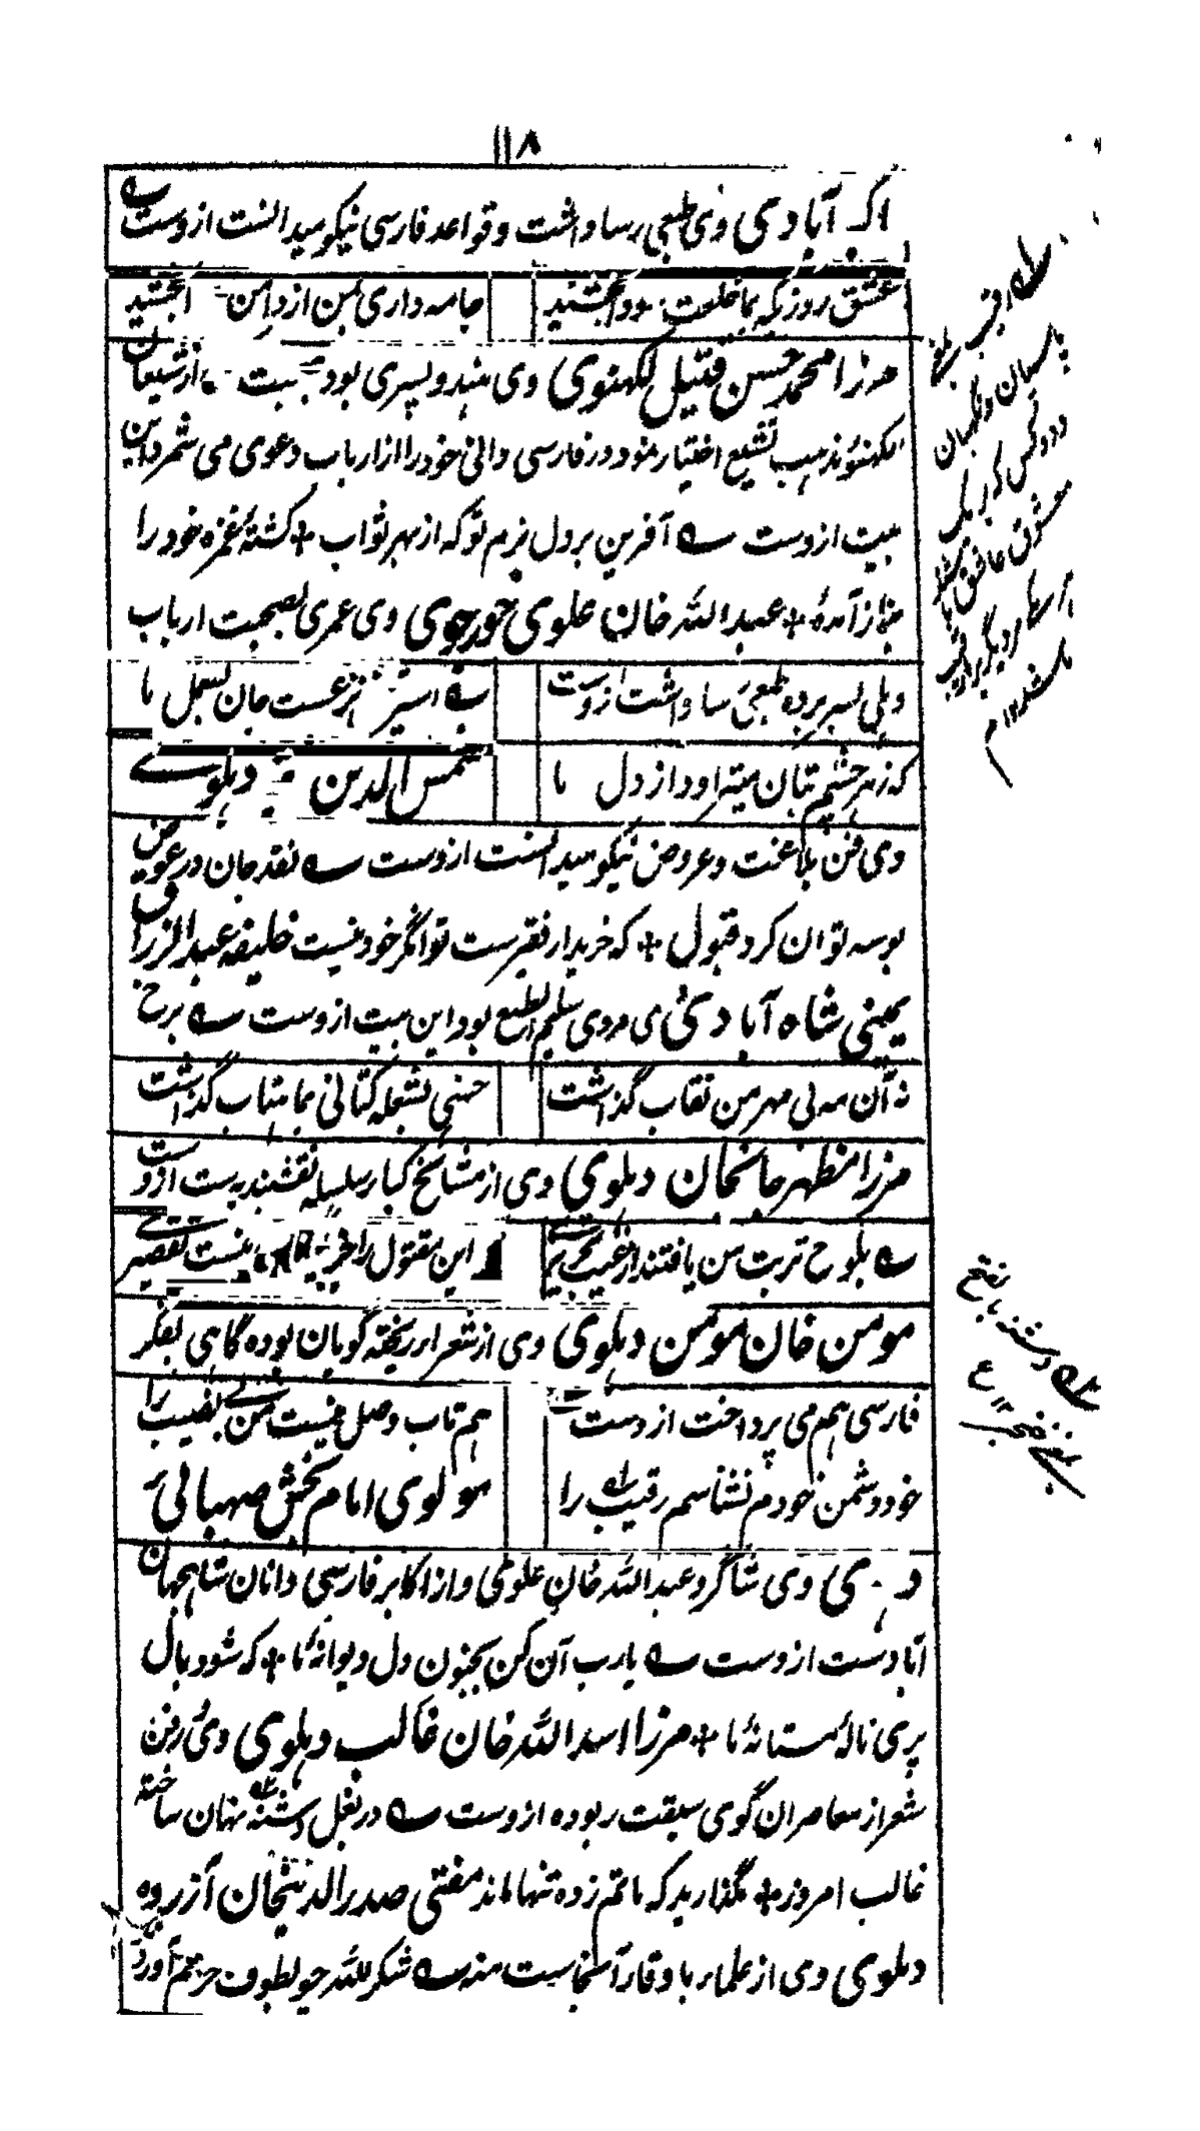 ۱۱۸
اکبرآبادی وی طبعی رسا داشت و قواعد فارسی نیکو میدانست ازوست
عشق روزیکه بما خلعت بخشید جامه داری بمن از دامن
مرزا محمد حسن قتیل لکهنوی وی هندو پسری بود از شیعان
لکهنؤ مذهب تشیع اختیار نمود در فارسی دانی خود را از ارباب دعوی می شمرد این
بیت ازوست ؎ آفرین بر دل نرم تو که از بهر ثواب + کشتهٔ غمزه خود را
بنماز آمدهٔ + عبد الله خان علوی خورجوی وی عمری بصحبت ارباب
دهلی بسر برده طبعی رسا داشت ازوست ؎ جان بسمل ما
که زهر چشم بتان میتراود از دل ما شمس الدین دهلوے
وی فن بلاغت و عروض نیکو میدانست ازوست ؎ نقد جان در عوض
بوسه توان کرد قبول + که خریدار فقیرست توانگر خود نیست خلیفه عبد الرزاق
یمینی شاه آبادی وی مردی سلیم الطبع بود این بیت ازوست ؎ برخ
نه آن مه بی مهر من نقاب گذاشت حسنی بشعله کتانی بماهتاب گذاشت
مرزا مظهر جانجانان دهلوی وی از مشائخ کبار سلسله نقشبندیه ست ازوست
؎ بلوح تربت من یافتند از غیب تحریرے که این مقتول را جز بیگناهی نیست تقصیرے
مومن خان مومن دهلوی وی از شعراء ریخته گویان بوده گاهی بفکر
فارسی هم می پرداخت ازوست ؎ هم تاب وصل نیست من بے نصیب را
خود دشمن خودم نشناسم رقیب را مولوی امام بخش صهبائی
دهلوی وی شاگرد عبد الله خان علوی و از اکابر فارسی دانان شاهجهان
آباد ست ازوست ؎ یارب آن کن بجنون دل دیوانهٔ ما + که شود بال
پری نالهٔ مستانهٔ ما + مرزا اسد الله خان غالب دهلوی وی در فن
شعر از معاصران گوی سبقت ربوده ازوست ؎ در بغل دشنه نهان ساخته
غالب امروز + مگذارید که ماتم زده تنها ماند مفتی صدر الدینخان آزرده
دهلوی وی از علماء با وقار آنجاست منه ؎ شکر لله چو بطوف حرمم آورد
پاسبان و نگهبان
و دو کس که بر یک
معشوق عاشق باشند
دشنه بالفتح